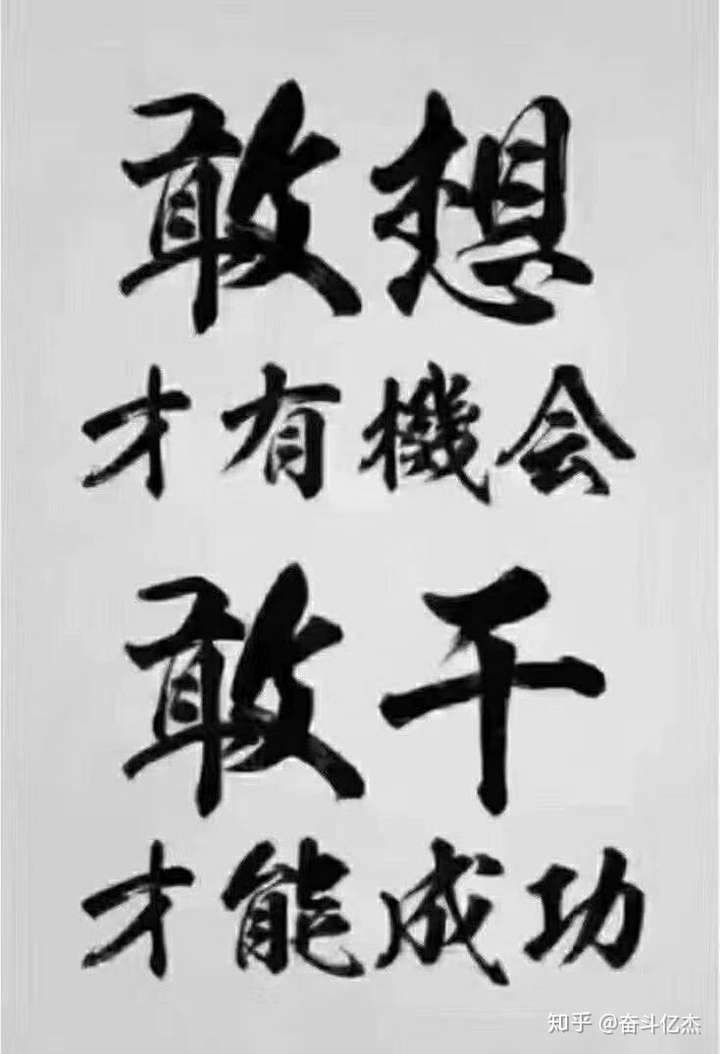 敢想
才有機会
敢干
才能成功
知乎 @奋斗亿杰